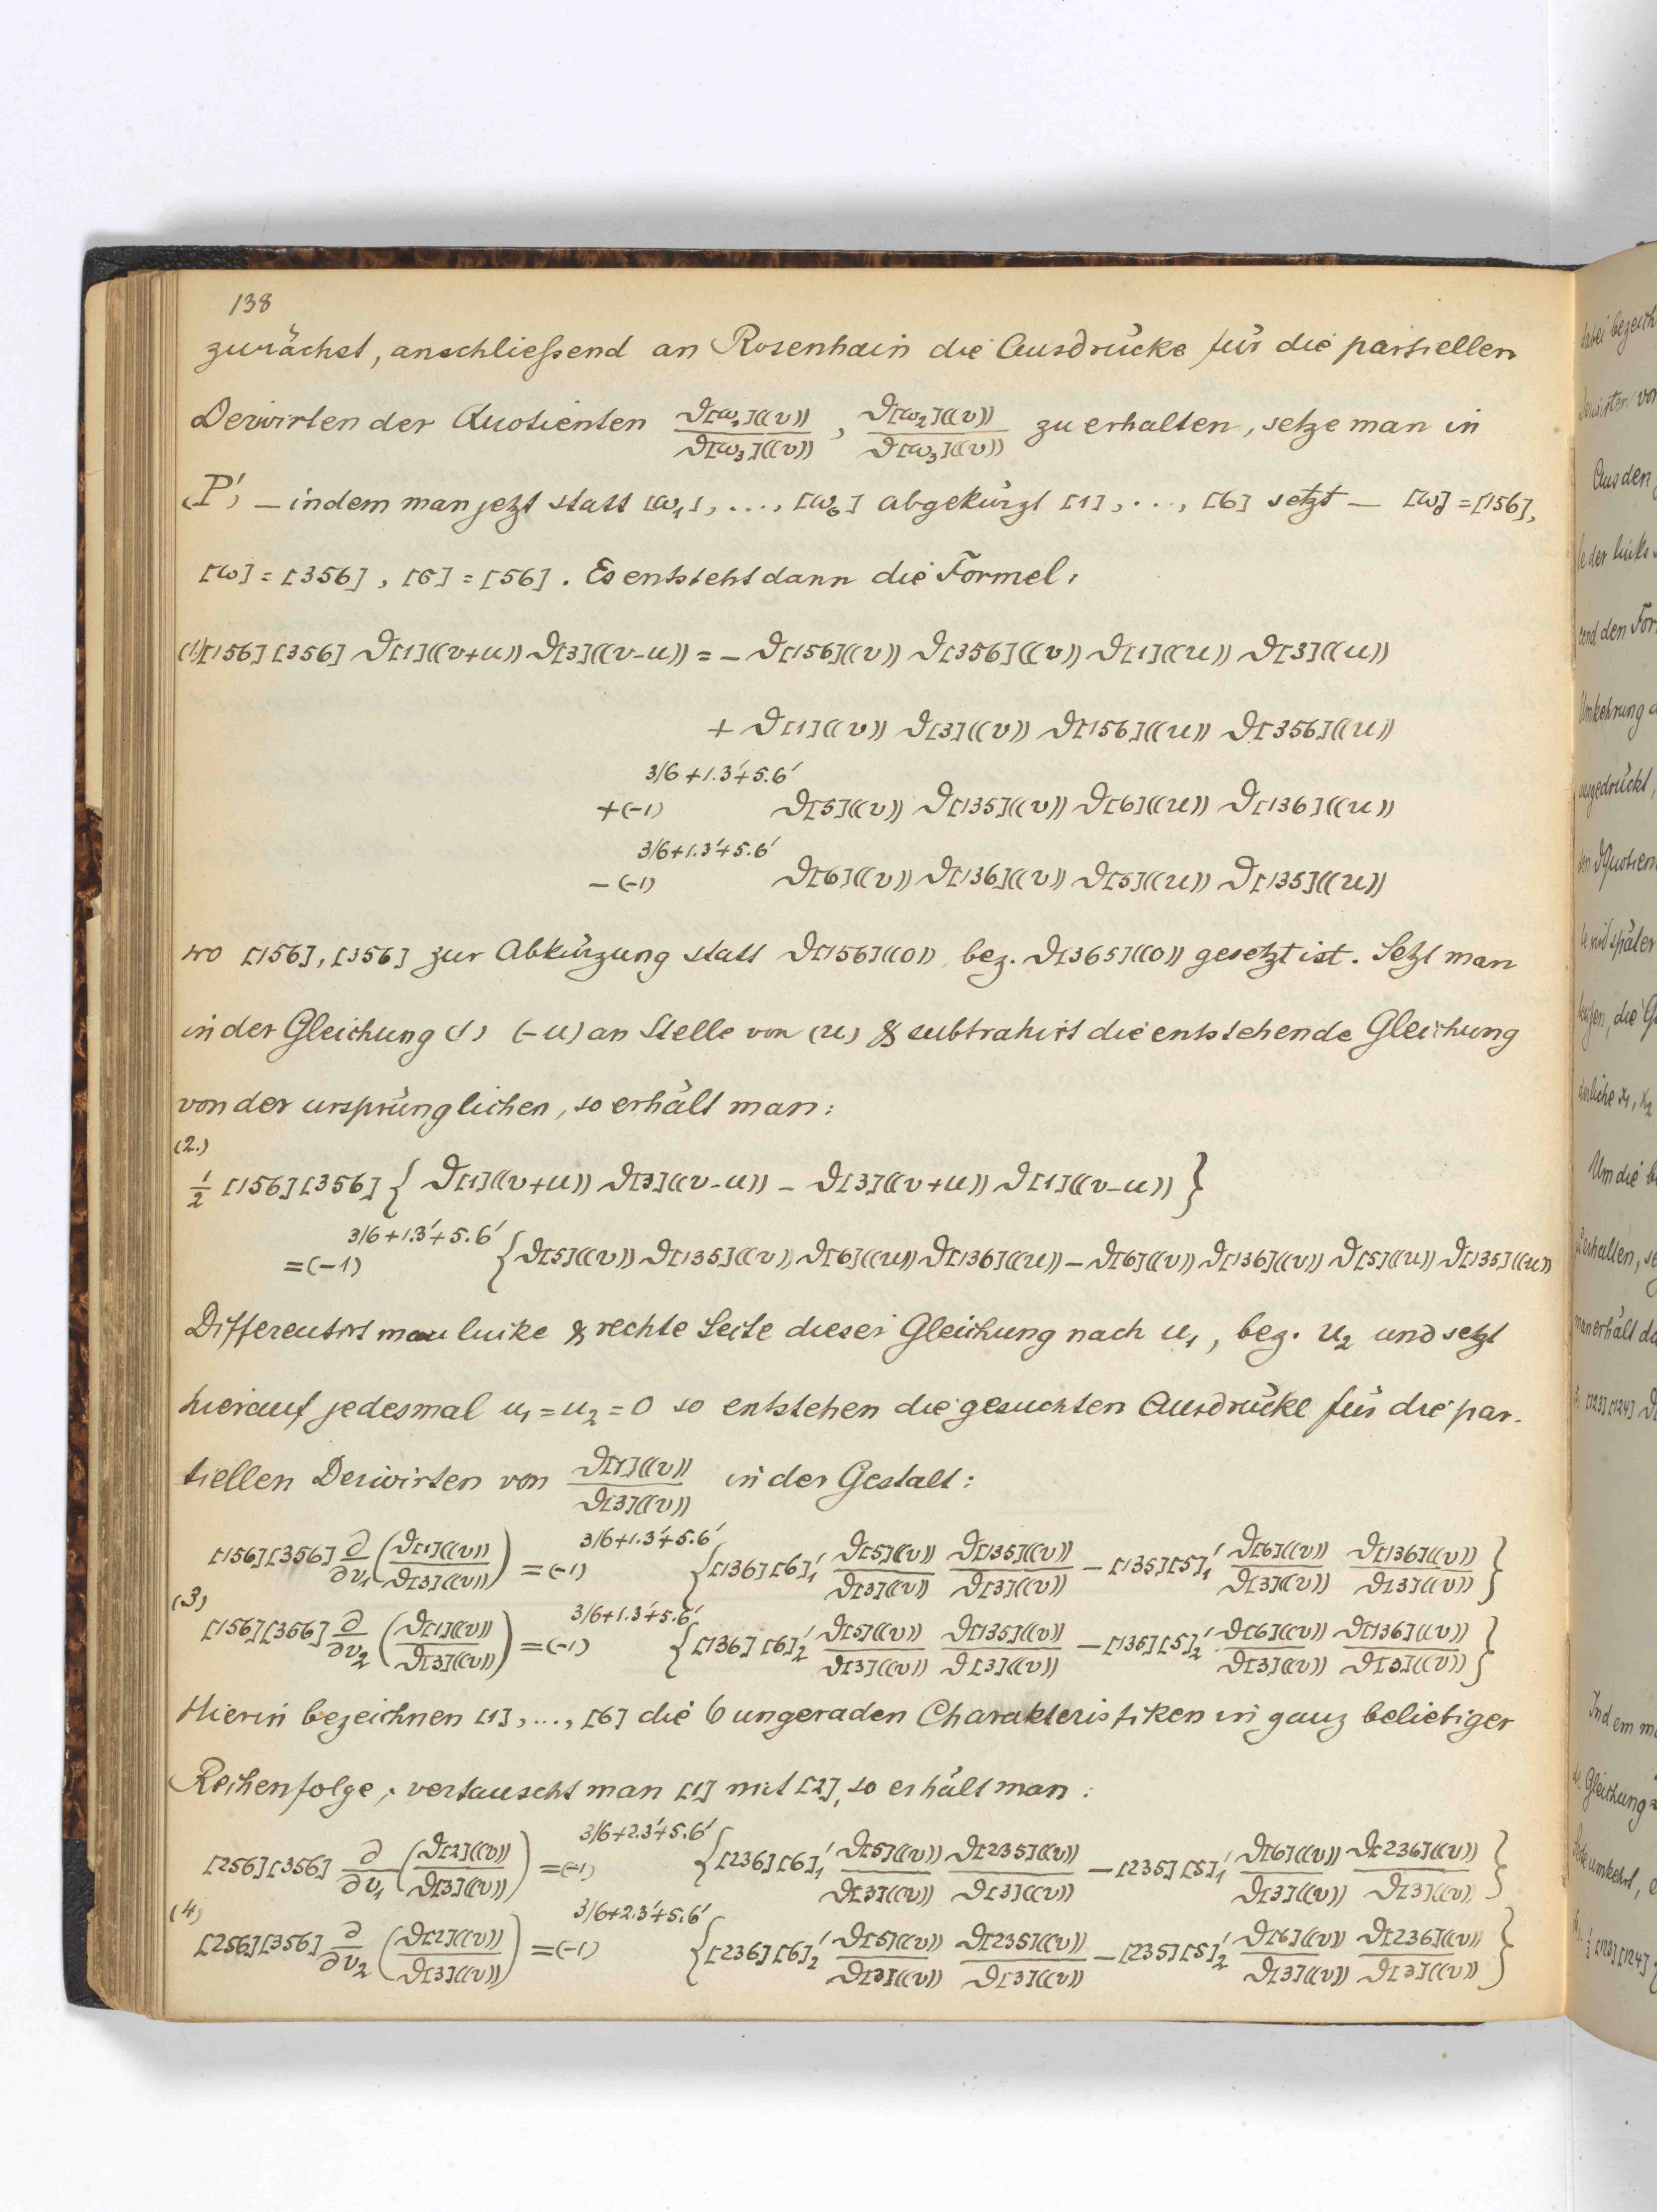 138
zunächst, anschließend an Rosenhain die Ausdrücke für die partiellen
Derivirten der Quotienten ϑ[ω₁]((v))/ϑ[ω₃]((v)), ϑ[ω₂]((v))/ϑ[ω₃]((v)) zu erhalten, setze man in
(P') – indem man jetzt statt [ω₁], ..., [ω₆] abgekürzt [1], ..., [6] setzt – [ω₀] = [156],
[ω] = [356], [6] = [56]. Es entsteht dann die Formel:
(1) [156][356] ϑ[1]((v+u)) ϑ[3]((v-u)) = - ϑ[156]((v)) ϑ[356]((v)) ϑ[1]((u)) ϑ[3]((u))
+ ϑ[1]((v)) ϑ[3]((v)) ϑ[156]((u)) ϑ[356]((u))
+(-1)^{3/6+1.3'+5.6'} ϑ[5]((v)) ϑ[135]((v)) ϑ[6]((u)) ϑ[136]((u))
-(-1)^{3/6+1.3'+5.6'} ϑ[6]((v)) ϑ[136]((v)) ϑ[5]((u)) ϑ[135]((u))
wo [156], [356] zur Abkürzung statt ϑ[156]((0)) bez. ϑ[365]((0)) gesetzt ist. Setzt man
in der Gleichung (1) (-u) an Stelle von (u) & subtrahirt die entstehende Gleichung
von der ursprünglichen, so erhält man:
(2.)
½ [156][356] { ϑ[1]((v+u)) ϑ[3]((v-u)) - ϑ[3]((v+u)) ϑ[1]((v-u)) }
=(-1)^{3/6+1.3'+5.6'} { ϑ[5]((v)) ϑ[135]((v)) ϑ[6]((u)) ϑ[136]((u)) - ϑ[6]((v)) ϑ[136]((v)) ϑ[5]((u)) ϑ[135]((u))
Differentirt man linke & rechte Seite dieser Gleichung nach u₁, bez. u₂ und setzt
hierauf jedesmal u₁=u₂=0 so entstehen die gesuchten Ausdrücke für die par-
tiellen Derivirten von ϑ[1]((v))/ϑ[3]((v)) in der Gestalt:
[156][356] ∂/∂v₁ (ϑ[1]((v))/ϑ[3]((v))) =(-1)^{3/6+1.3'+5.6'} {[136][6]₁' ϑ[5]((v))/ϑ[3]((v)) ϑ[135]((v))/ϑ[3]((v)) - [135][5]₁' ϑ[6]((v))/ϑ[3]((v)) ϑ[136]((v))/ϑ[3]((v))}
(3)
[156][356] ∂/∂v₂ (ϑ[1]((v))/ϑ[3]((v))) =(-1)^{3/6+1.3'+5.6'} {[136][6]₂' ϑ[5]((v))/ϑ[3]((v)) ϑ[135]((v))/ϑ[3]((v)) - [135][5]₂' ϑ[6]((v))/ϑ[3]((v)) ϑ[136]((v))/ϑ[3]((v))}
Hierin bezeichnen [1], ..., [6] die 6 ungeraden Charakteristiken in ganz beliebiger
Reihenfolge; vertauscht man [1] mit [2], so erhält man:
[256][356] ∂/∂v₁ (ϑ[2]((v))/ϑ[3]((v))) =(-1)^{3/6+2.3'+5.6'} {[236][6]₁' ϑ[5]((v))/ϑ[3]((v)) ϑ[235]((v))/ϑ[3]((v)) - [235][5]₁' ϑ[6]((v))/ϑ[3]((v)) ϑ[236]((v))/ϑ[3]((v))}
(4)
[256][356] ∂/∂v₂ (ϑ[2]((v))/ϑ[3]((v))) =(-1)^{3/6+2.3'+5.6'} {[236][6]₂' ϑ[5]((v))/ϑ[3]((v)) ϑ[235]((v))/ϑ[3]((v)) - [235][5]₂' ϑ[6]((v))/ϑ[3]((v)) ϑ[236]((v))/ϑ[3]((v))}
Aus den
Um die